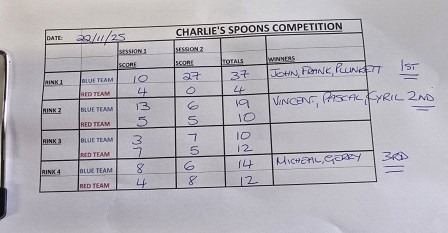 CHARLIE'S SPOONS COMPETITION
DATE: 22/11/25
SESSION 1 SCORE SESSION 2 SCORE TOTALS WINNERS
RINK 1 BLUE TEAM 10 27 37 JOHN, FRANK, PLUNKETT 1ST
RED TEAM 4 0 4
RINK 2 BLUE TEAM 13 6 19 VINCENT, PASCAL, CYRIL 2ND
RED TEAM 5 5 10
RINK 3 BLUE TEAM 3 7 10
RED TEAM 7 5 12
RINK 4 BLUE TEAM 8 6 14 MICHEAL, GERRY 3RD
RED TEAM 4 8 12